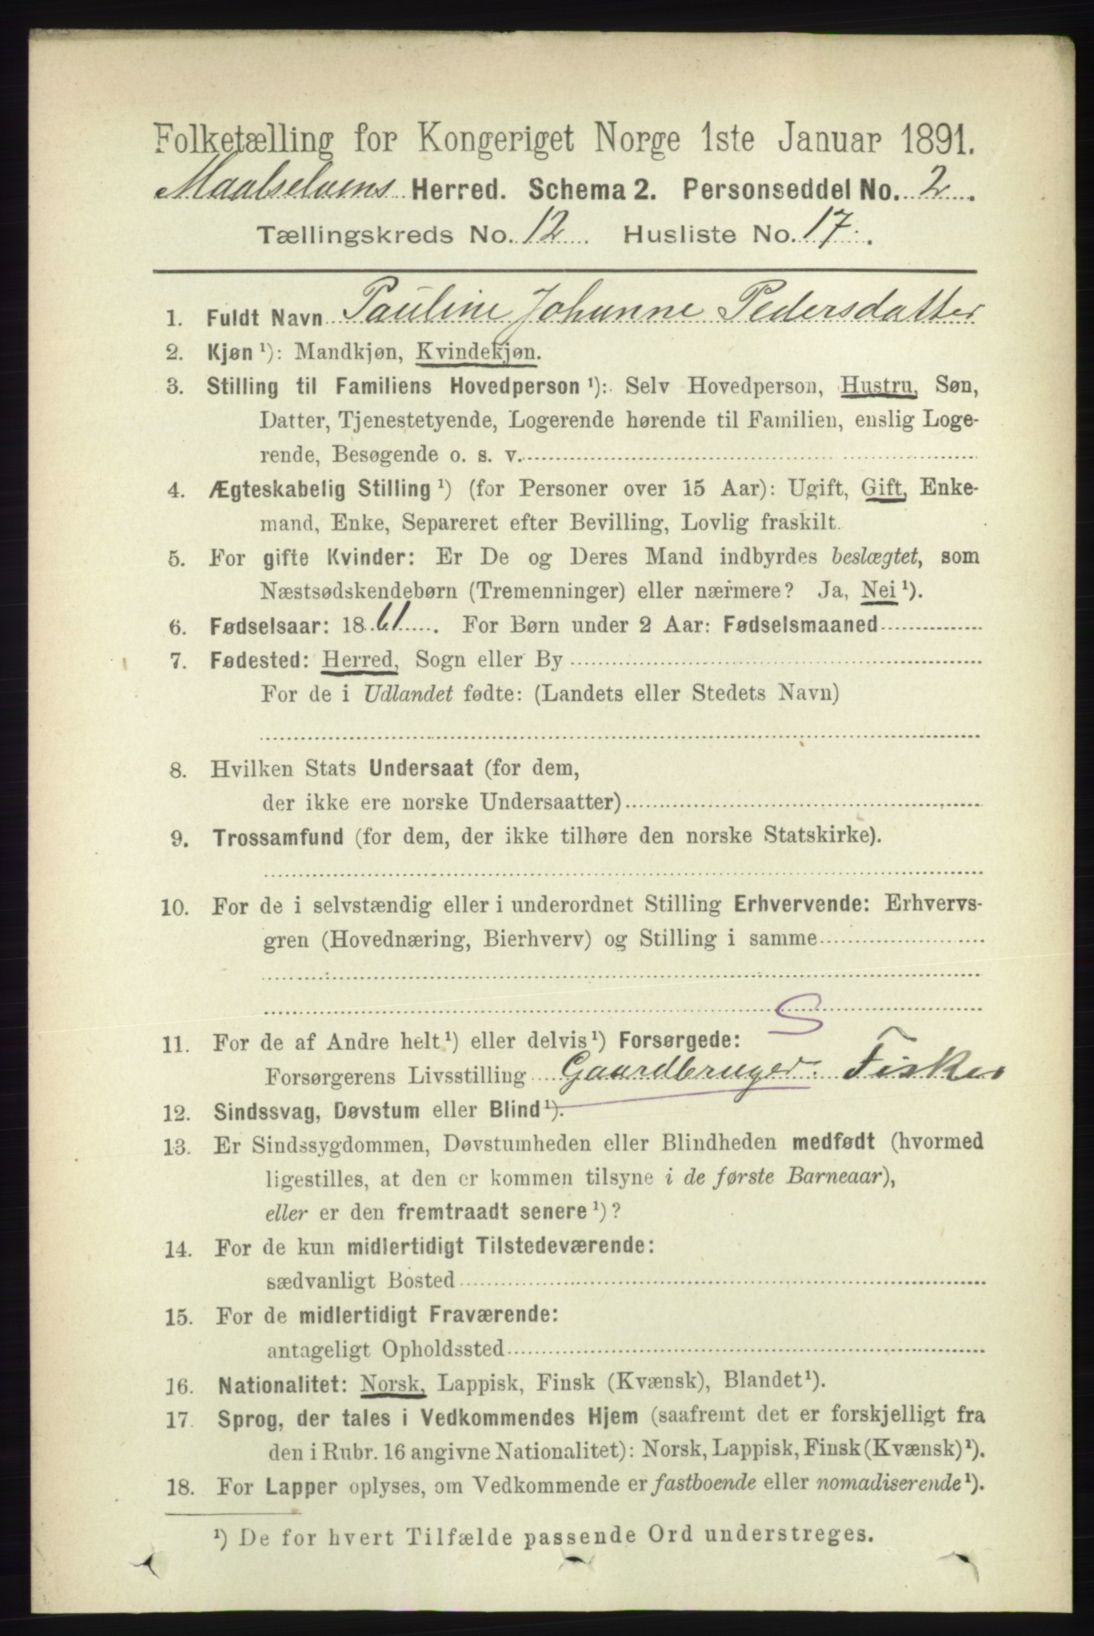 Folketælling for Kongeriget Norge 1ste Januar 1891.
Maalselvens Herred. Schema 2. Personseddel No. 2.
Tællingskreds No. 12 Husliste No. 17.
1. Fuldt Navn Pauline Johanne Pedersdatter
2. Kjøn¹): Mandkjøn, Kvindekjøn.
3. Stilling til Familiens Hovedperson¹): Selv Hovedperson, Hustru, Søn,
Datter, Tjenestetyende, Logerende hørende til Familien, enslig Loge-
rende, Besøgende o. s. v.
4. Ægteskabelig Stilling¹) (for Personer over 15 Aar): Ugift, Gift, Enke-
mand, Enke, Separeret efter Bevilling, Lovlig fraskilt.
5. For gifte Kvinder: Er De og Deres Mand indbyrdes beslægtet, som
Næstsødskendebørn (Tremenninger) eller nærmere? Ja, Nei¹).
6. Fødselsaar: 1861. For Børn under 2 Aar: Fødselsmaaned
7. Fødested: Herred, Sogn eller By
For de i Udlandet fødte: (Landets eller Stedets Navn)
8. Hvilken Stats Undersaat (for dem,
der ikke ere norske Undersaatter)
9. Trossamfund (for dem, der ikke tilhøre den norske Statskirke).
10. For de i selvstændig eller i underordnet Stilling Erhvervende: Erhvervs-
gren (Hovednæring, Bierhverv) og Stilling i samme
S
11. For de af Andre helt¹) eller delvis¹) Forsørgede:
Forsørgerens Livsstilling Gaardbruger. Fisker
12. Sindssvag, Døvstum eller Blind¹).
13. Er Sindssygdommen, Døvstumheden eller Blindheden medfødt (hvormed
ligestilles, at den er kommen tilsyne i de første Barneaar),
eller er den fremtraadt senere¹)?
14. For de kun midlertidigt Tilstedeværende:
sædvanligt Bosted
15. For de midlertidigt Fraværende:
antageligt Opholdssted
16. Nationalitet: Norsk, Lappisk, Finsk (Kvænsk), Blandet¹).
17. Sprog, der tales i Vedkommendes Hjem (saafremt det er forskjelligt fra
den i Rubr. 16 angivne Nationalitet): Norsk, Lappisk, Finsk (Kvænsk)¹).
18. For Lapper oplyses, om Vedkommende er fastboende eller nomadiserende¹).
¹) De for hvert Tilfælde passende Ord understreges.